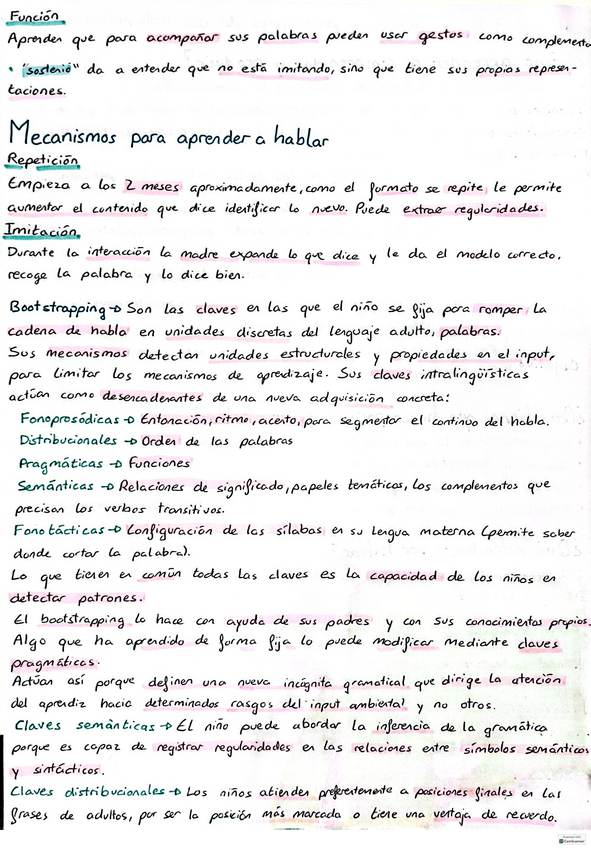 Función
Aprender que para acompañar sus palabras pueden usar gestos como complemento
• "sostenio" da a entender que no está imitando, sino que tiene sus propias represen-
taciones.
Mecanismos para aprender a hablar
Repetición
Empieza a los 2 meses aproximadamente, como el formato se repite, le permite
aumentar el contenido que dice identificar lo nuevo. Puede extraer regularidades.
Imitación
Durante la interacción la madre expande lo que dice y le da el modelo correcto,
recoge la palabra y lo dice bien.
Bootstrapping → Son las claves en las que el niño se fija para romper la
cadena de habla en unidades discretas del lenguaje adulto, palabras.
Sus mecanismos detectan unidades estructurales y propiedades en el input,
para limitar los mecanismos de aprendizaje. Sus claves intralingüísticas
actúan como desencadenantes de una nueva adquisición concreta:
Fonoprosódicas → Entonación, ritmo, acento, para segmentar el continuo del habla.
Distribucionales → Orden de las palabras
Pragmáticas → Funciones
Semánticas → Relaciones de significado, papeles temáticos, los complementos que
precisan los verbos transitivos.
Fonotácticas → Configuración de las sílabas en su lengua materna (permite saber
donde cortar la palabra).
Lo que tienen en común todas las claves es la capacidad de los niños en
detectar patrones.
El bootstrapping lo hace con ayuda de sus padres y con sus conocimientos propios.
Algo que ha aprendido de forma fija lo puede modificar mediante claves
pragmáticas.
Actúan así porque definen una nueva incógnita gramatical que dirige la atención
del aprendiz hacia determinados rasgos del input ambiental y no otros.
Claves semánticas → El niño puede abordar la inferencia de la gramática
porque es capaz de registrar regularidades en las relaciones entre símbolos semánticos
y sintácticos.
Claves distribucionales → Los niños atienden preferentemente a posiciones finales en las
frases de adultos, por ser la posición más marcada o tiene una ventaja de recuerdo.
CamScanner